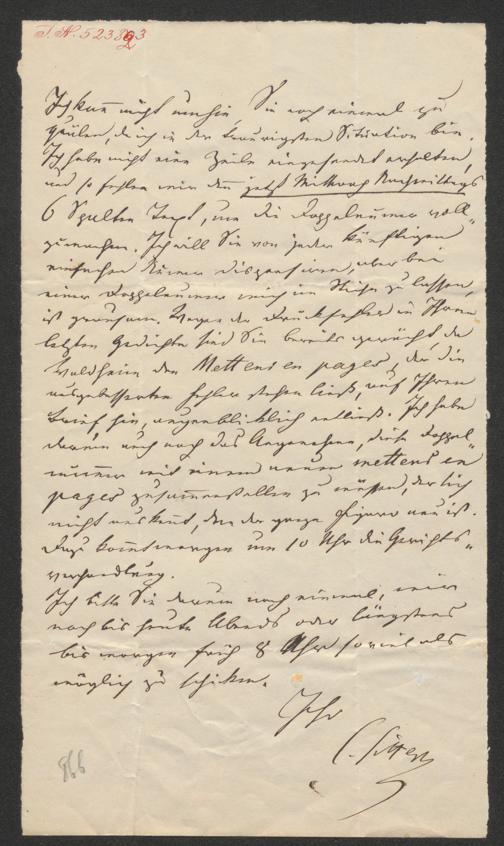 I. N. 52383
Ich kann nicht umhin, Sie noch einmal zu
quälen, da ich in der traurigsten Situation bin.
Ich habe nicht eine Zeile eingesendet erhalten,
und so fehlen mir denn jetzt Mittwoch Nachmittags
6 Spalten Text, um die Doppelnummer voll-
zumachen. Ich will Sie von jeder künftigen
einfachen Nummer dispensiren, aber bei
einer Doppelnummer mich im Stiche zu lassen,
ist grausam. Wegen der Druckfehler in Ihrem
letzten Gedichte sind Sie bereits gerächt, da
Waldheim den Metteur en pages, der die
ausgebesserten Fehler stehen ließ, auf Ihren
Brief hin, augenblicklich entließ. Ich habe
darum auch noch das Angenehme, diese Doppel-
nummer mit einem neuen metteur en
pages zusammenstellen zu müssen, der sich
nicht auskennt, dem der ganze Figaro neu ist.
Dazu kommt morgen um 10 Uhr die Gerichts-
verhandlung.
Ich bitte Sie darum noch einmal, mir
noch bis heute Abends oder längstens
bis morgen früh 8 Uhr so viel als
möglich zu schicken.
Ihr
C. Sitter